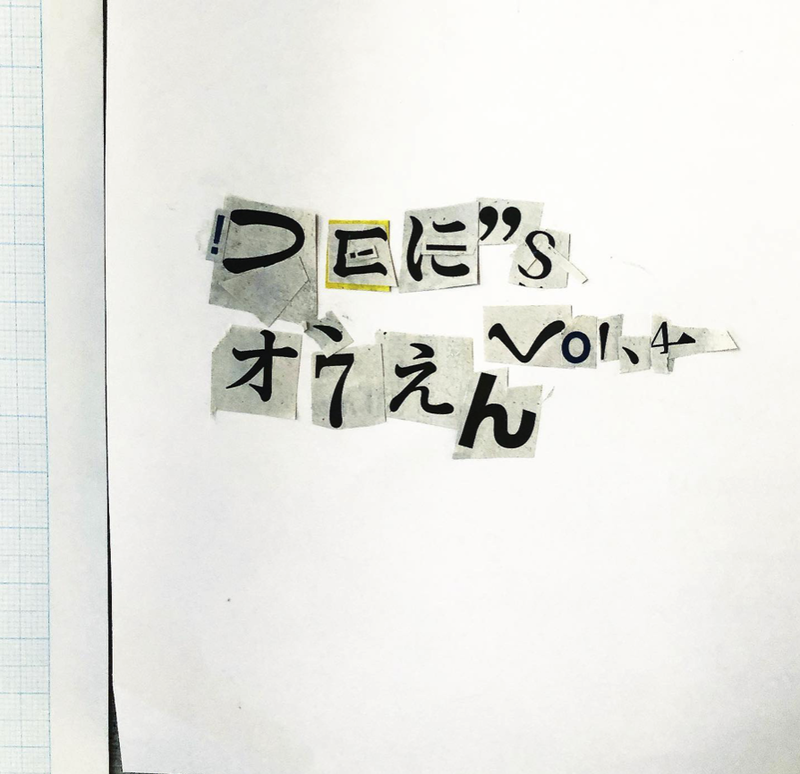 DEに”s
オうえん vol、4